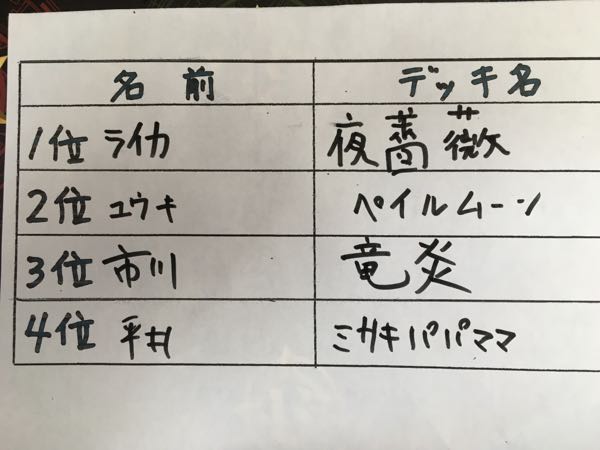 名前 デッキ名
1位 ライカ 夜薔薇
2位 ユウキ ペイルムーン
3位 市川 竜炎
4位 平井 ミサキパパママ